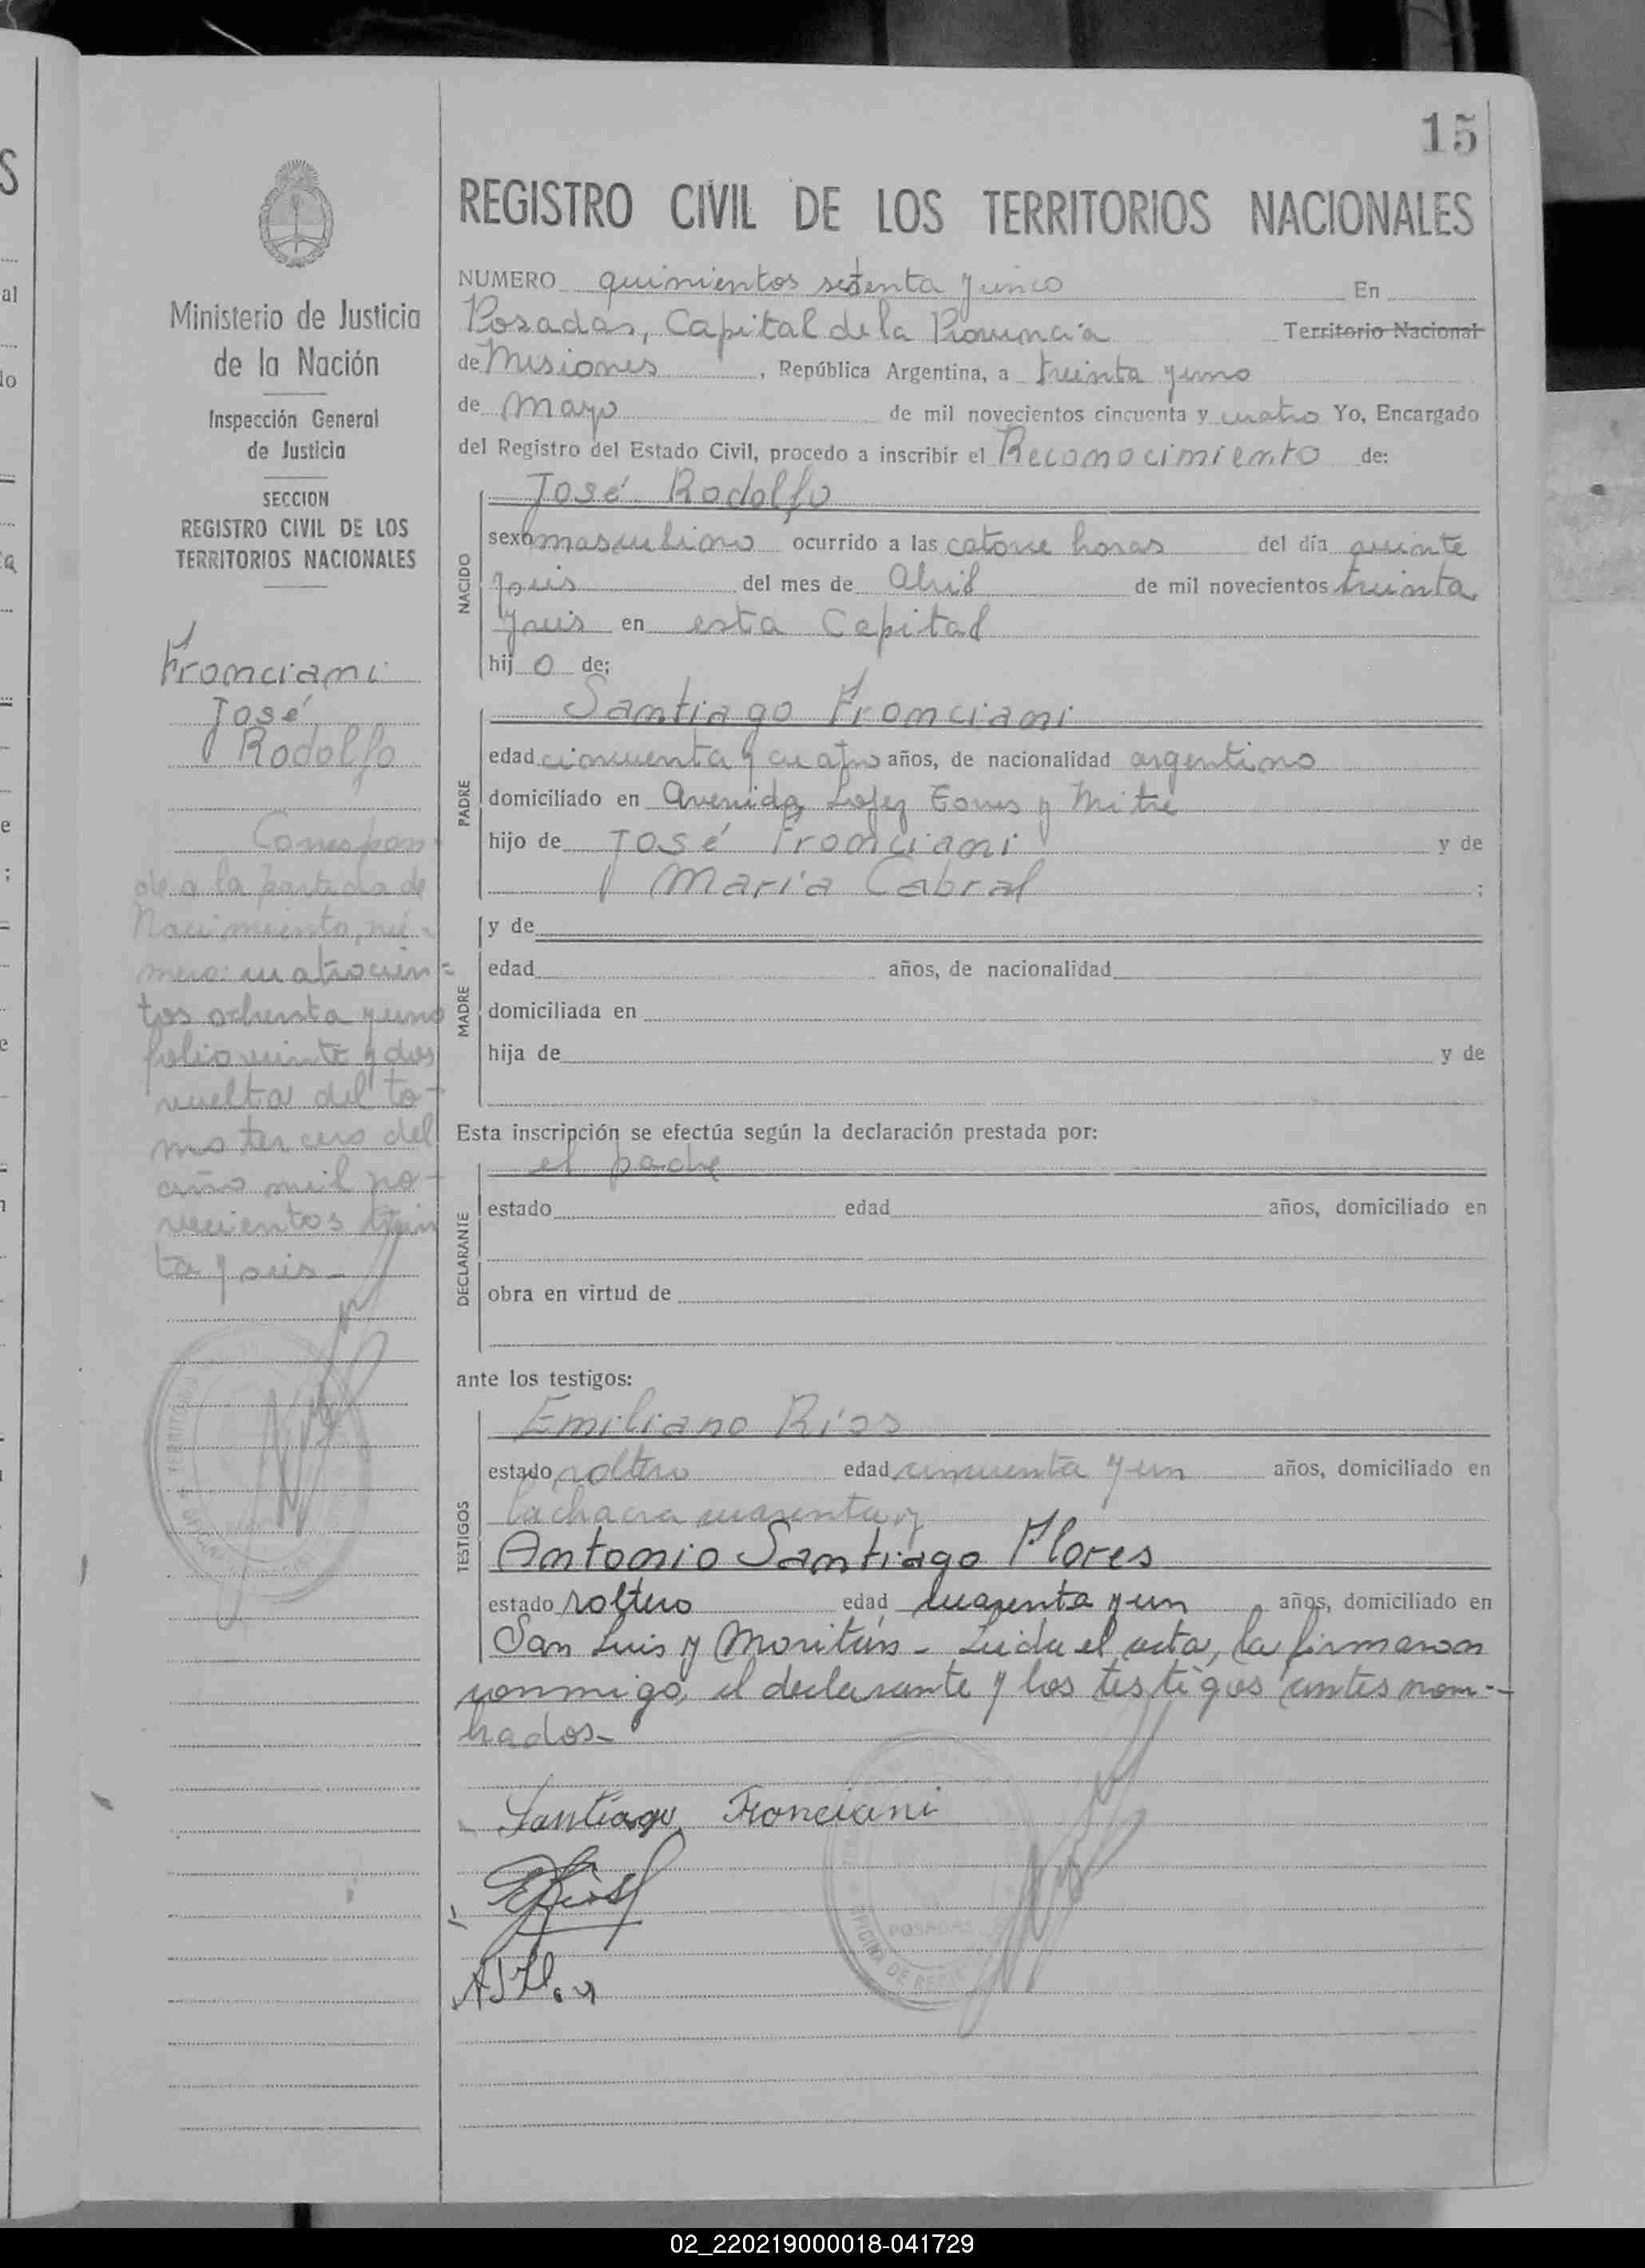 15
REGISTRO CIVIL DE LOS TERRITORIOS NACIONALES
Ministerio de Justicia
de la Nación
Inspección General
de Justicia
SECCION
REGISTRO CIVIL DE LOS
TERRITORIOS NACIONALES
Fronciani
José
Rodolfo
Correspon-
de a la partida de
Nacimiento, nú-
mero: cuatrocien=
tos ochenta y uno
folio veinte y dos
vuelta del to-
mo tercero del
año mil no-
vecientos trein
ta y seis-
NUMERO quinientos setenta y cinco En
Posadas, Capital de la Provincia Territorio Nacional
de Misiones, República Argentina, a treinta y uno
de mayo de mil novecientos cincuenta y cuatro Yo, Encargado
del Registro del Estado Civil, procedo a inscribir el Reconocimiento de:
NACIDO
José Rodolfo
sexo masculino ocurrido a las catorce horas del día veinte
y seis del mes de Abril de mil novecientos treinta
y seis en esta Capital
hij o de:
PADRE
Santiago Fronciani
edad cincuenta y cuatro años, de nacionalidad argentino
domiciliado en Avenida Lopez Torres y Mitre
hijo de José Fronciani y de
María Cabral ;
MADRE
y de
edad años, de nacionalidad
domiciliada en
hija de y de
Esta inscripción se efectúa según la declaración prestada por:
DECLARANTE
el padre
estado edad años, domiciliado en
obra en virtud de
ante los testigos:
TESTIGOS
Emiliano Ríos
estado soltero edad cincuenta y un años, domiciliado en
la chacra cuarenta y
Antonio Santiago Flores
estado soltero edad cuarenta y un años, domiciliado en
San Luis y Moritán- Leída el acta, la firmaron
conmigo, el declarante y los testigos antes nom-
brados-
Santiago Fronciani
POSADAS
02_220219000018-041729